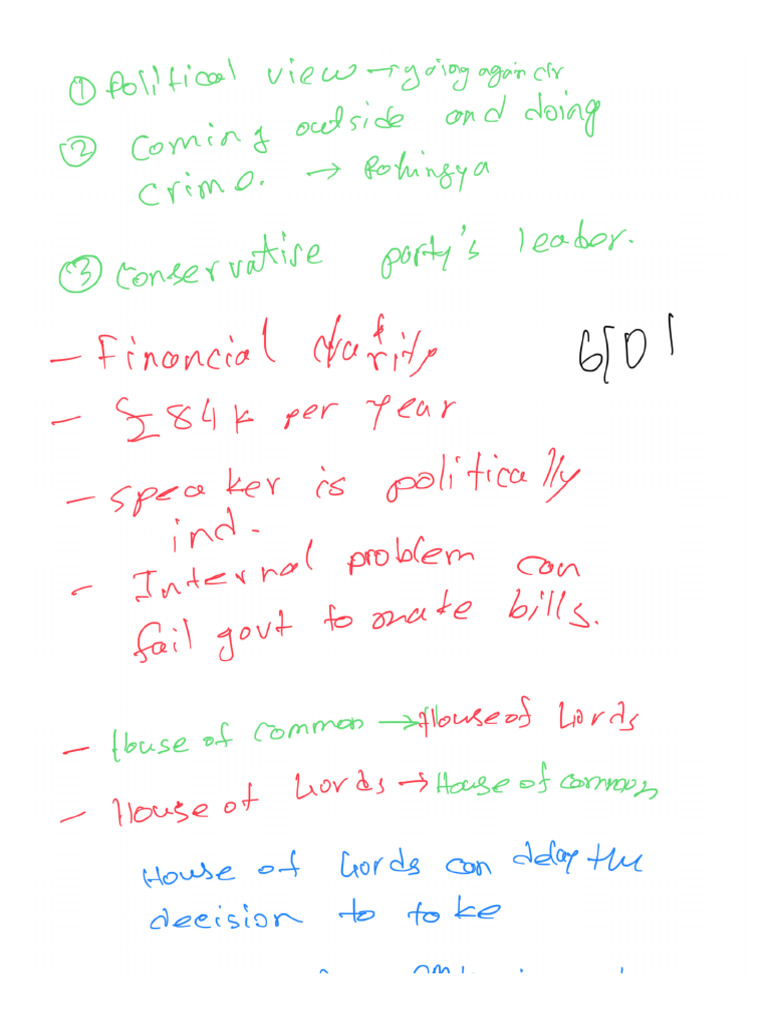 ① Political view → going against
② Coming outside and doing
crime. → Rohingya
③ Conservative party's leader.
- Financial
- £84k per year
- speaker is politically
ind.
- Internal problem can
fail govt to make bills.
- House of common → House of Lords
- House of Lords → House of common
House of Lords can delay the
decision to take